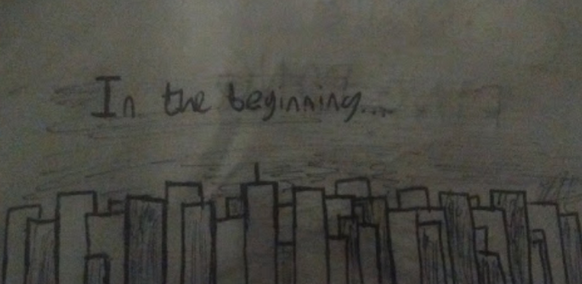 In the beginning...